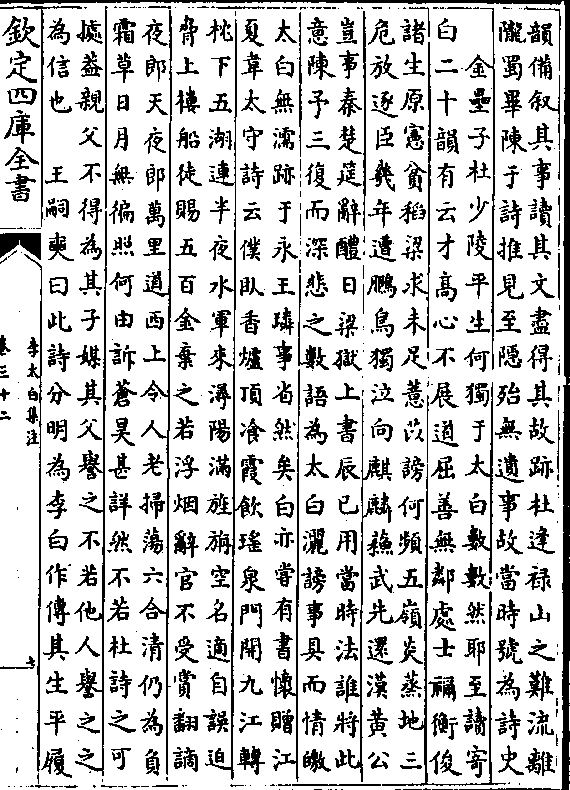 韻備叙其事讀其文盡得其故跡杜逢禄山之難流離
隴蜀畢陳于詩推見至隱殆無遺事故當時號為詩史
金壘子杜少陵平生何獨于太白數數然耶至讀寄
白二十韻有云才高心不展道屈善無鄰處士禰衡俊
諸生原憲貧稻梁求未足薏苡謗何頻五嶺炎蒸地三
危放逐臣幾年遭鵬鳥獨泣向麒麟蘇武先還漢黄公
豈事秦楚筵辭醴日梁獄上書辰已用當時法誰將此
意陳予三復而深悲之數語為太白灑謗事具而情皦
太白無濡跡于永王璘事省然矣白亦嘗有書懷贈江
夏韋太守詩云僕卧香爐頂飡霞飲瑤泉門開九江轉
枕下五湖連半夜水軍來潯陽滿旌旃空名適自誤迫
脅上樓船徒賜五百金棄之若浮烟辭官不受賞翻謫
夜郎天夜郎萬里道西上令人老掃蕩六合清仍為負
霜草日月無徧照何由訴蒼昊甚詳然不若杜詩之可
據葢親父不得為其子媒其父譽之不若他人譽之之
為信也 王嗣奭曰此詩分明為李白作傳其生平履
欽定四庫全書
李太白集注
卷三十二